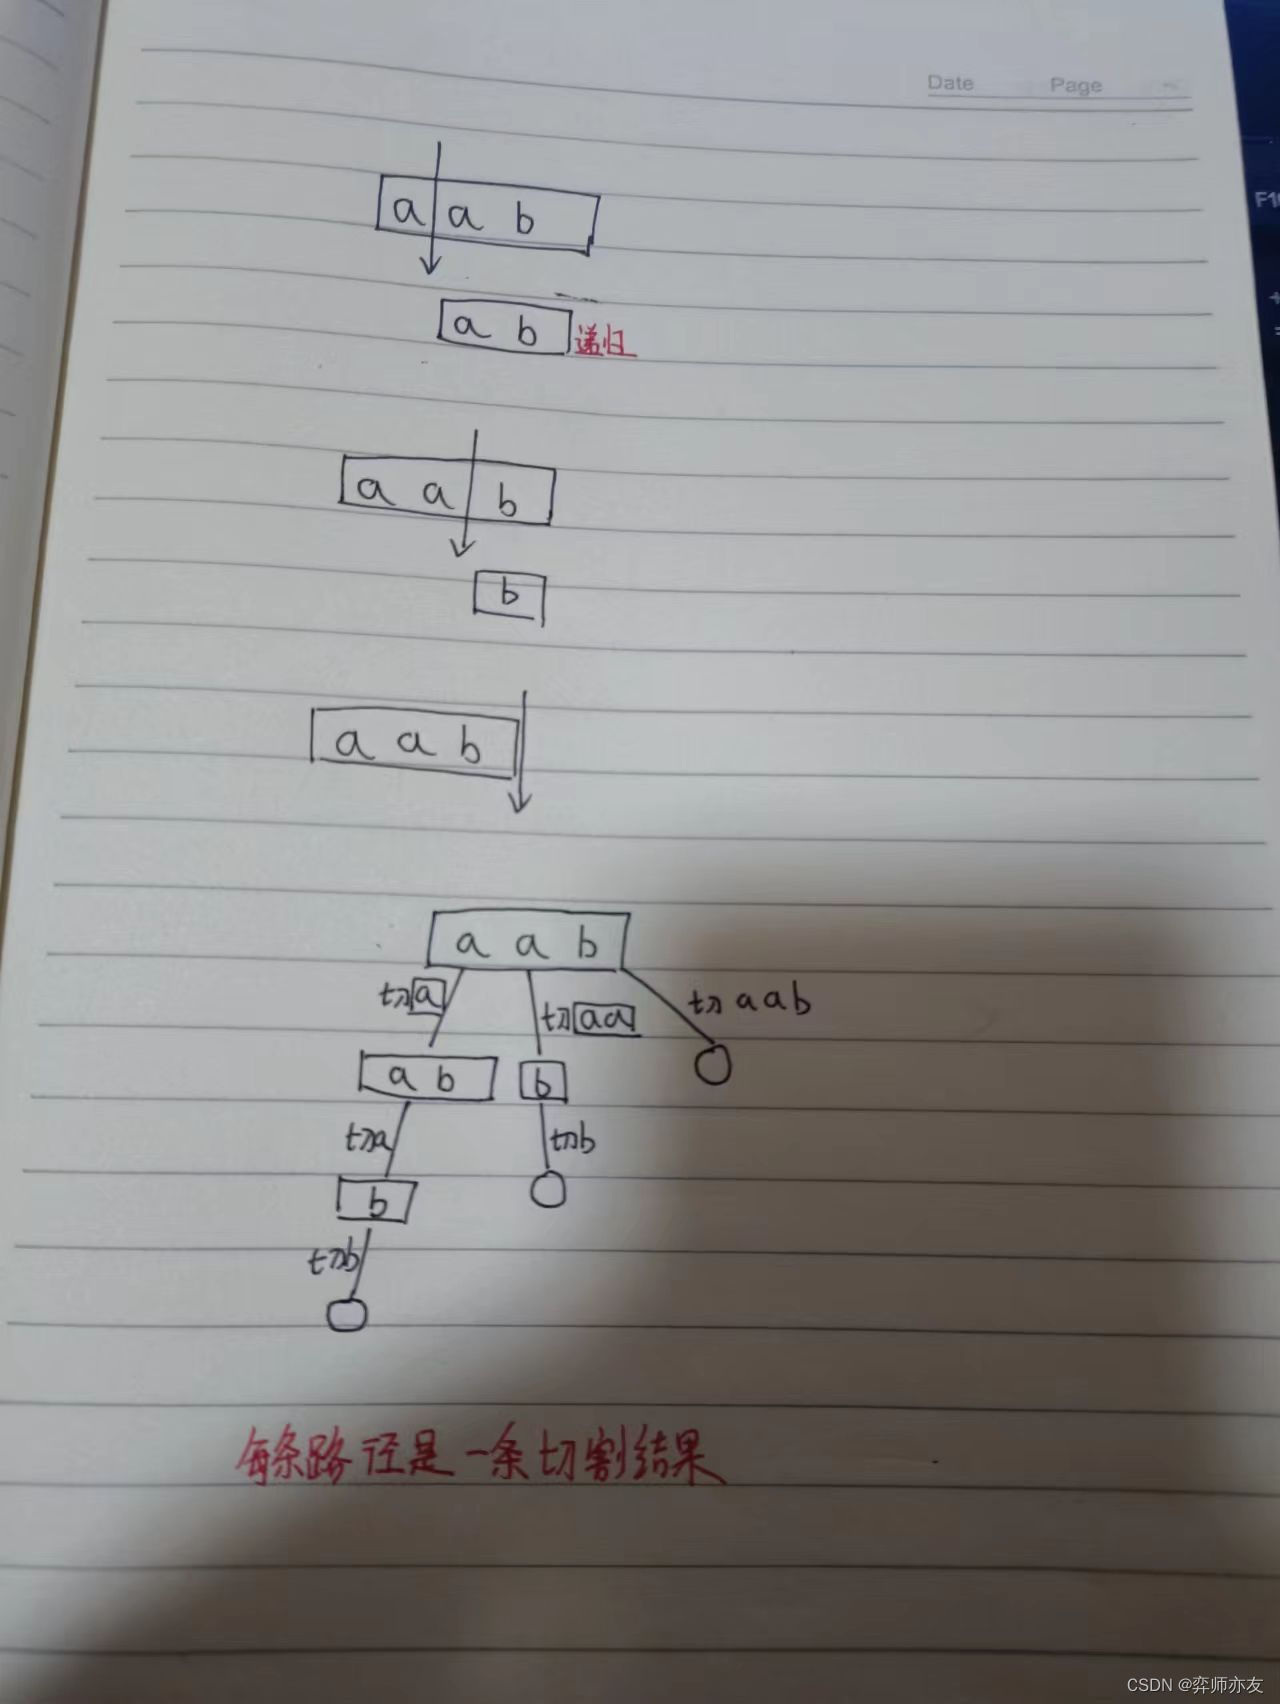 Date Page
F10
a a b
a b 递归
a a b
b
a a b
a a b
切a 切aa 切aab
a b b
切a 切b
b
切b
每条路径是一条切割结果
CSDN @弈师亦友